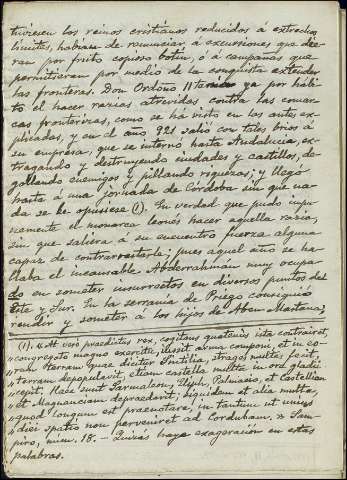 tuviesen los reinos cristianos reducidos á estrechos
límites, habían de renunciar á excursiones que die-
ran por fruto copioso botín, ó á campañas que
permitieran por medio de la conquista extender
las fronteras. Don Ordoño II tenía ya por hábi-
to el hacer razias atrevidas contra las comar-
cas fronterizas, como se há visto en los antes ex-
plicadas, y en el año 921 salió con tales bríos á
su empresa, que se internó hasta Andalucía, es-
tragando y destruyendo ciudades y castillos, de-
gollando enemigos y pillando riquezas; y llegó
hasta á una jornada de Córdoba sin que na-
da se le opusiese (1). En verdad que pudo impu-
nemente el monarca leonés hacer aquella razia,
sin que saliera á su encuentro fuerza alguna
capaz de contrarrestarla, pues aquel año se ha-
llaba el incansable Abderrahmán muy ocupa-
do en someter insurrectos en diversos puntos del
Este y Sur. En la serranía de Priego consiguió
rendir y someter á los hijos de Aben-Mastana;
(1). "At veró praedictus rex, cogitans quatenus ista contrairet,
congregato magno exercitu, iussit arma componi, et in eo-
ram terram quae dicitur Sintilia, strages multas fecit,
terram depopulavit, etiam castella multa in ore gladii
cepit. Haec sunt Sarmaleon, Eliph, Palmacio, et Castellion
et Magnanciam depraedavit; siquidem et alia multa,
quod longum est praenotare, in tantum ut unius
diei spatio non perveniret ad Cordubam, " Sam-
piro, núm. 18. – Quizás haya exageración en estas
palabras.